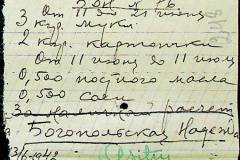 От 11 до 21 июня
3 кур. муки
2 кир. картошки
От 11 июня до 11 июля
0,500 постного масла
0,500 соли
За наличный расчет
Богопольская Надежда
3/6-1942